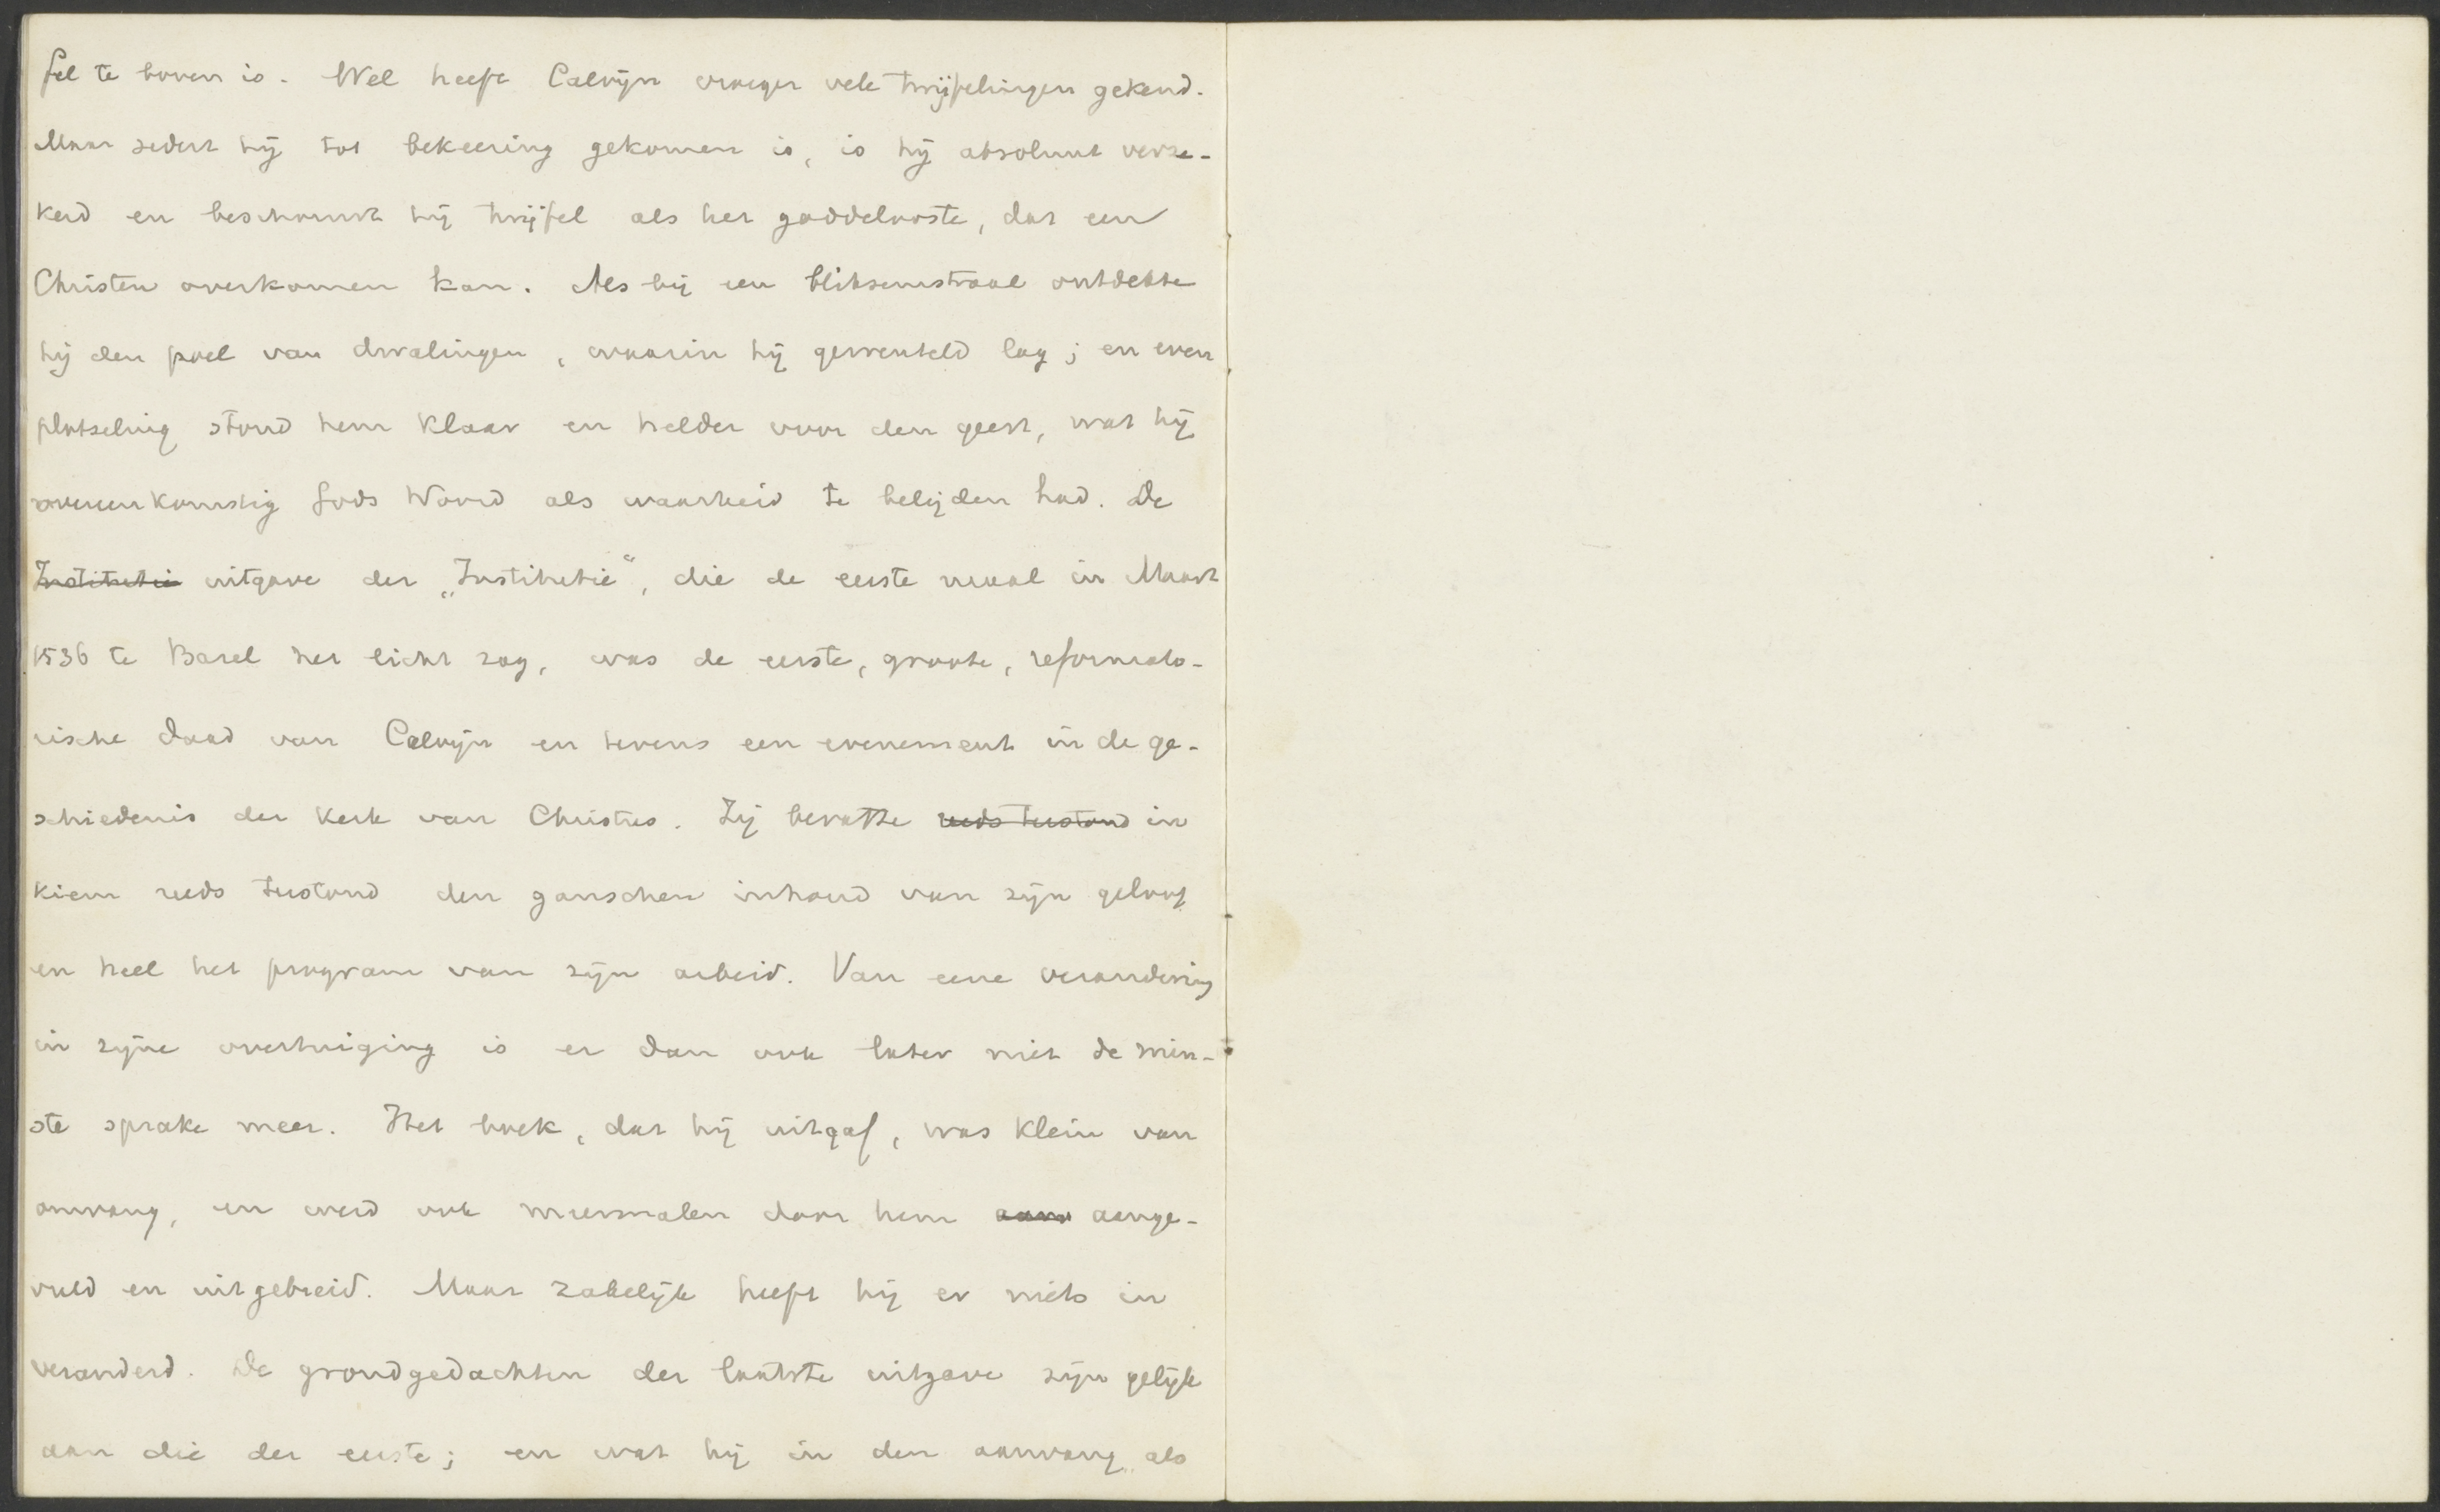 fel te boven is. Wel heeft Calvijn vroeger vele twijfelingen gekend.
Maar sedert hij tot bekeering gekomen is, is hij absoluut verze-
kerd en beschouwt hij twijfel als het goddelooste, dat een
Christen overkomen kan. Als bij een bliksemstraal ontdekte
hij den poel van dwalingen, waarin hij gewenteld lag; en even
plotseling stond hem klaar en helder voor den geest, wat hij
overeenkomstig Gods Woord als waarheid te belijden had. De
Institutie uitgave der „Institutie“, die de eerste maal in Maart
1536 te Basel het licht zag, was de eerste, groote, reformato-
rische daad van Calvijn en tevens een evenement in de ge-
schiedenis der Kerk van Christus. Zij bevatte reeds tustond in
kiem reeds tustond den ganschen inhoud van zijn geloof
en heel het program van zijn arbeid. Van eene verandering
in zijne overtuiging is er dan ook later niet de min-
ste sprake meer. Het boek, dat hij uitgaf, was klein van
omvang, en werd ook meermalen door hem aan aange-
vuld en uitgebreid. Maar zakelijk heeft hij er niets in
veranderd. De grondgedachten der laatste uitgave zijn gelijk
aan die der eerste; en wat hij in den aanvang als